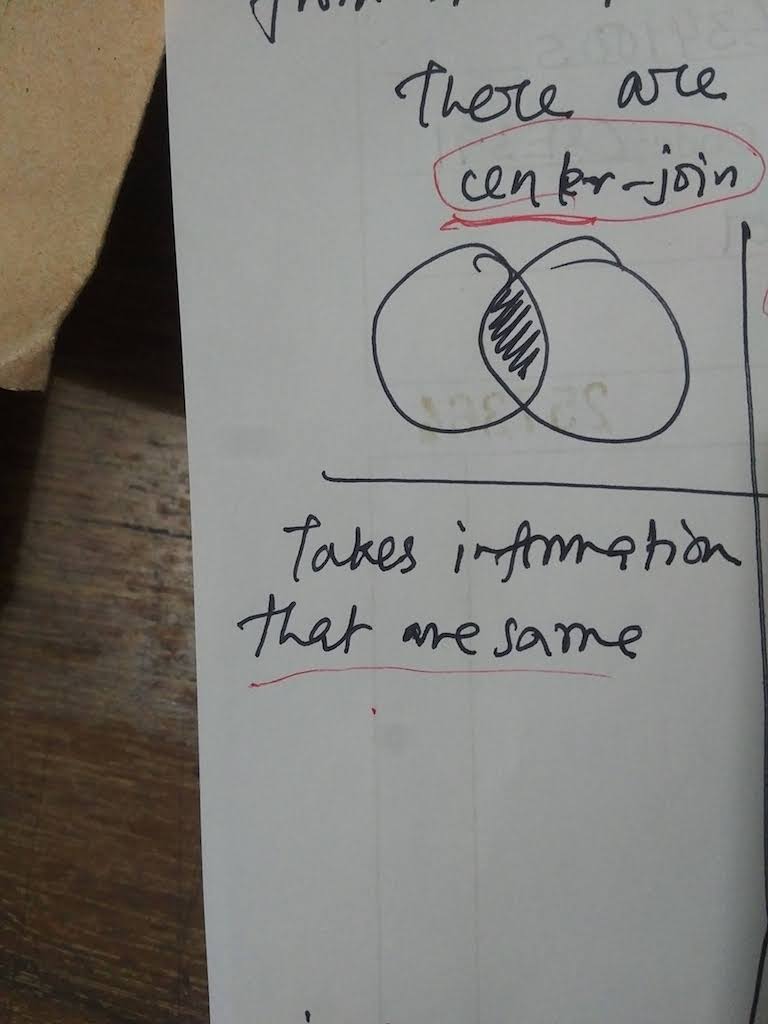 There are
center-join
Takes information
that are same